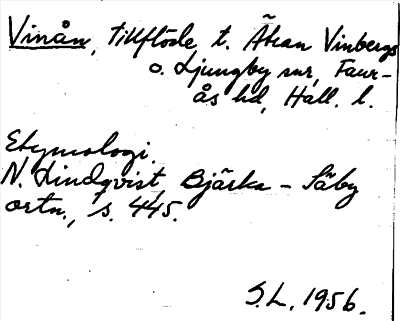 Vinån, tillflöde t. Ätran Vinbergs
o. Ljungby snr, Faur-
ås hd, Hall. l.
Etymologi.
N. Lindqvist, Bjärka - Säby
ortn., s. 445.
S.L. 1956.